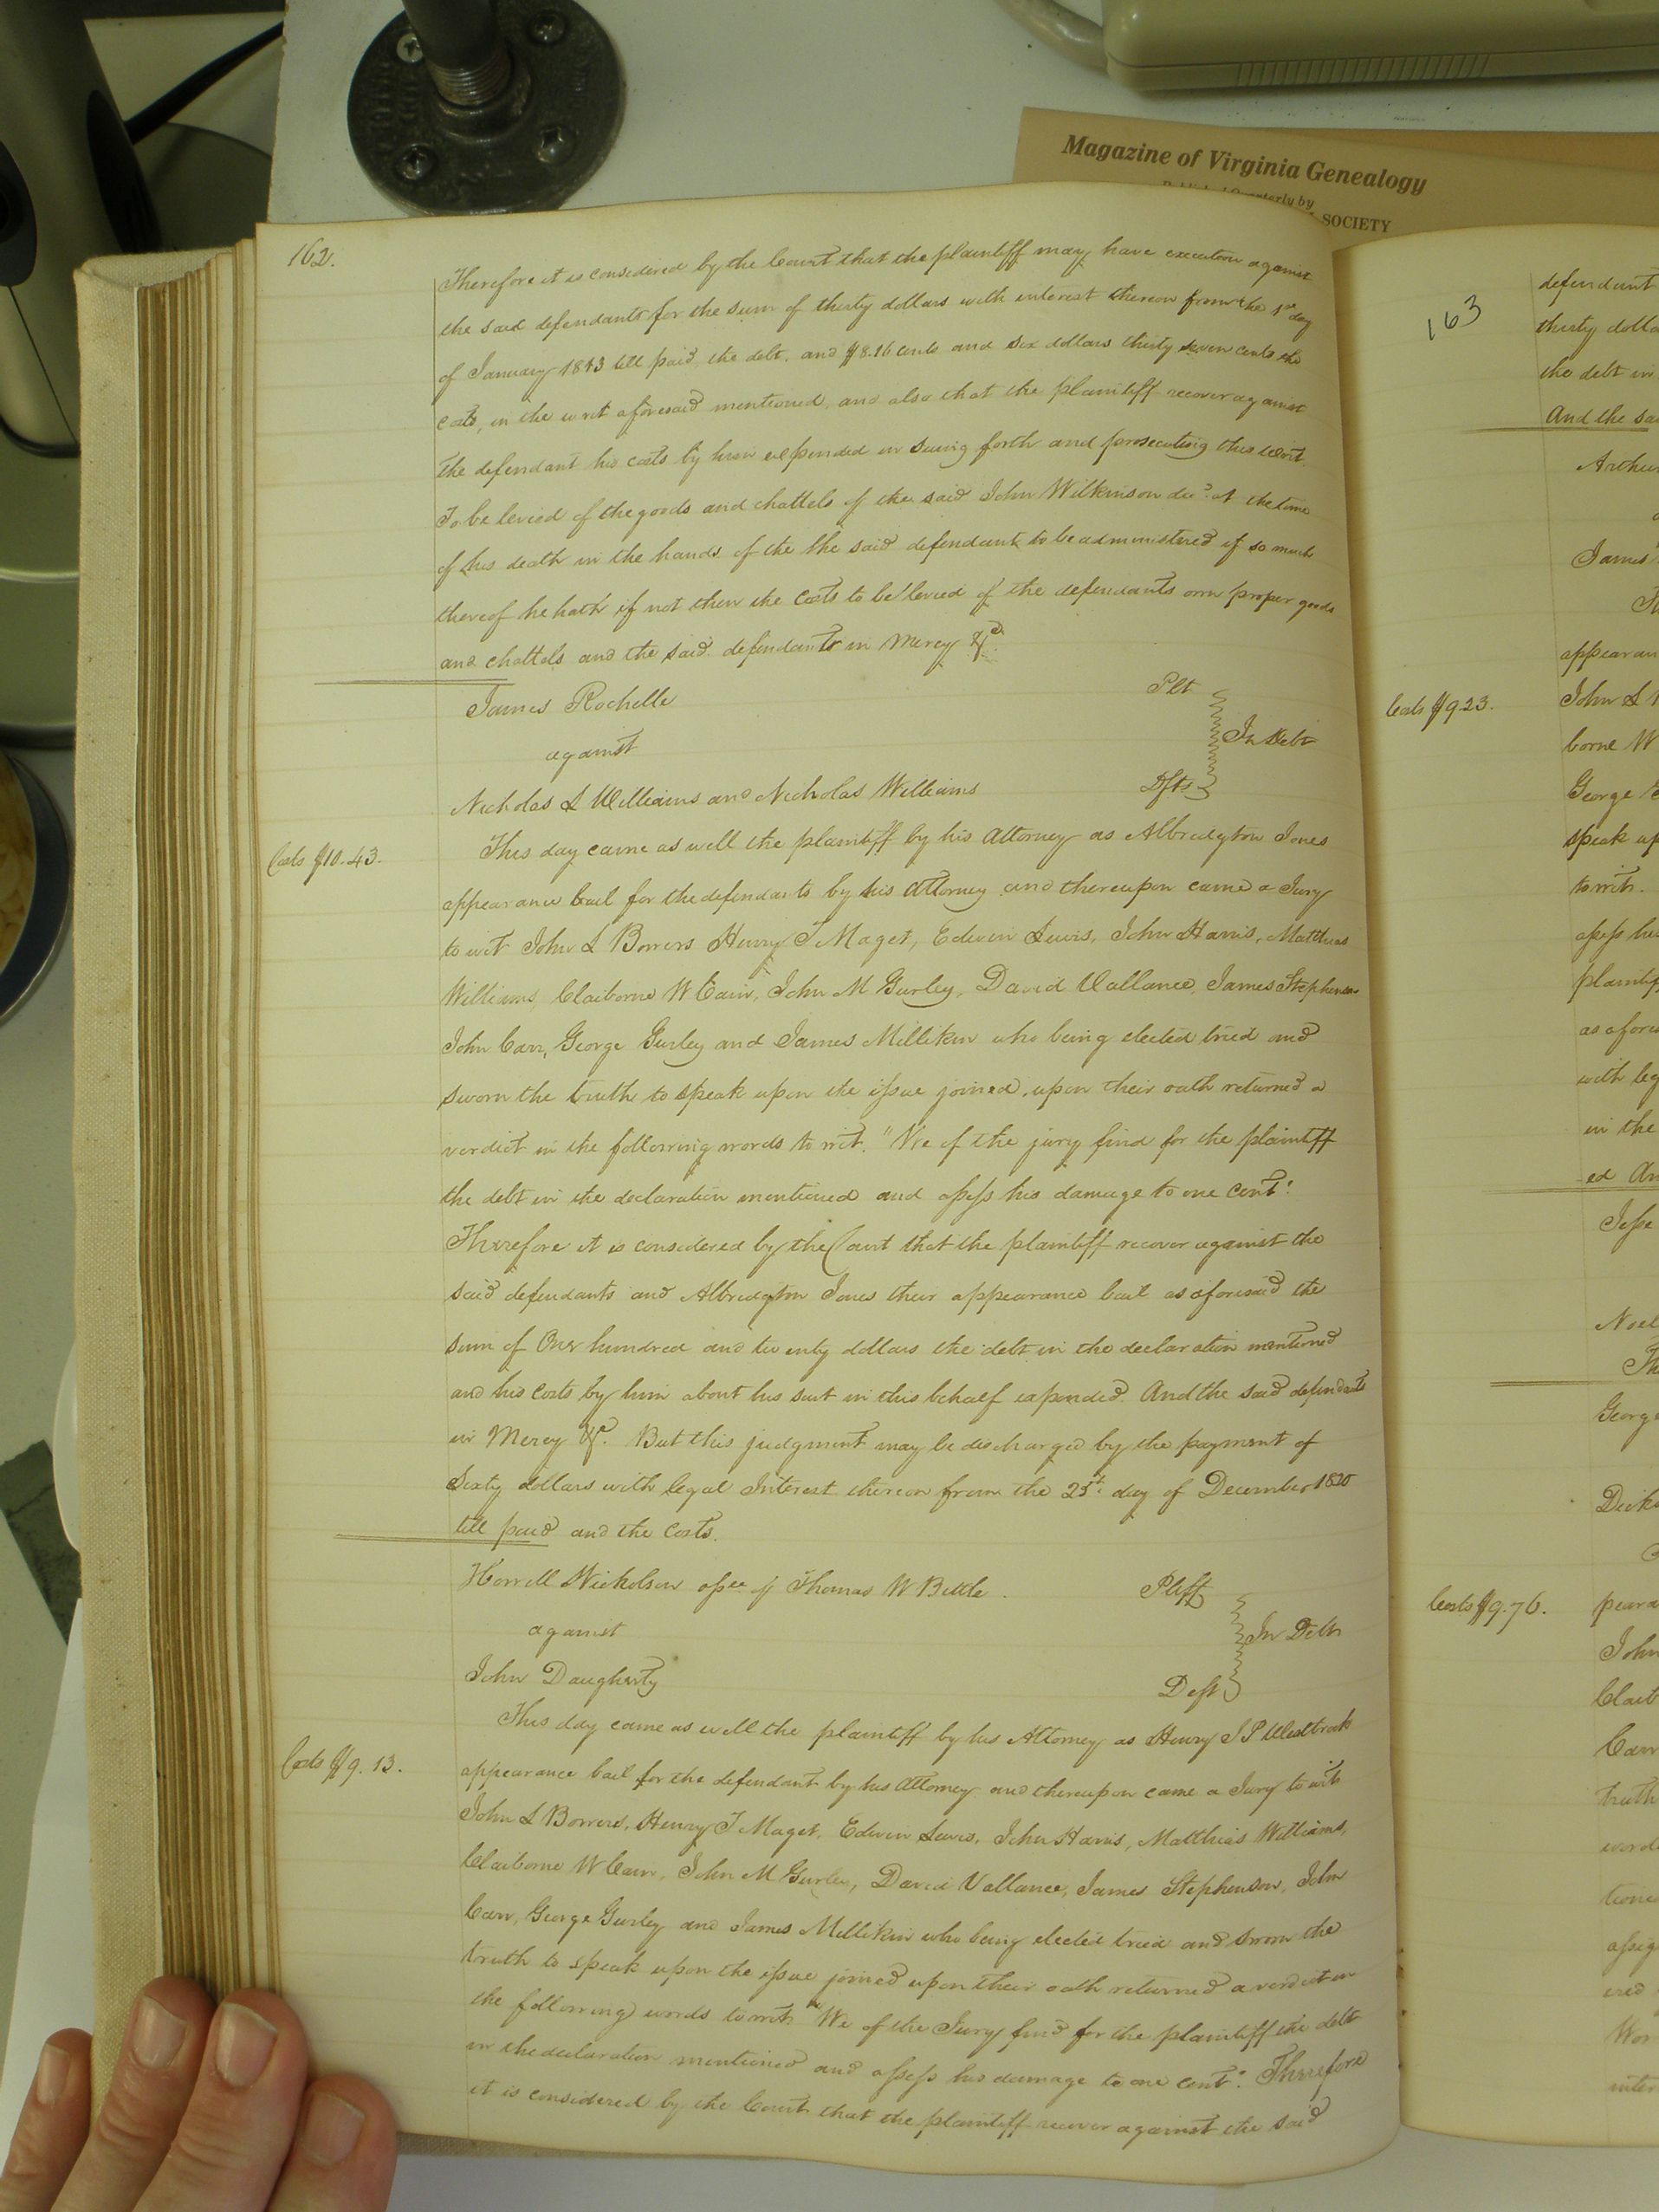 Magazine of Virginia Genealogy
SOCIETY
162.
Therefore it is considered by the Court that the plaintiff may have execution against
the said defendants for the sum of thirty dollars with interest thereon from the 1st day
of January 1813 till paid, the debt, and $8.16 cents and six dollars thirty seven cents the
costs, in the writ aforesaid mentioned, and also that the plaintiff recover against
the defendant his costs by him expended in suing forth and prosecuting this writ.
To be levied of the goods and chattels of the said John Wilkinson decd. at the time
of his death in the hands of the the said defendant to be administered if so much
thereof he hath if not then the costs to be levied of the defendants own proper goods
and chattels and the said defendants in Mercy &c.
James Rochelle Plt
against In Debt
Nicholas L Williams and Nicholas Williams Dfts
Costs $10.43.
This day came as well the plaintiff by his Attorney as Albridgton Jones
appearance bail for the defendants by his Attorney and thereupon came a Jury
to wit John L Bowers Henry T Maget, Edwin Lewis, John Harris, Matthias
Williams, Claiborne W Carr, John M Gurley, David Vallance, James Stephenson
John Carr, George Gurley and James Millikin who being elected tried and
sworn the truth to speak upon the issue joined, upon their oath returned a
verdict in the following words to wit. "We of the jury find for the plaintiff
the debt in the declaration mentioned and assess his damage to one cent".
Therefore it is considered by the Court that the plaintiff recover against the
said defendants and Albridgton Jones their appearance bail as aforesaid the
sum of One hundred and twenty dollars the debt in the declaration mentioned
and his costs by him about his suit in this behalf expended. And the said defendants
in Mercy &c. But this judgment may be discharged by the payment of
Sixty dollars with legal Interest thereon from the 25t. day of December 1820
till paid and the Costs.
Horrell Nickolson assee of Thomas W Bittle. Pltff
against In Debt
John Daugharty Deft
Costs $9.13.
This day came as well the plaintiff by his Attorney as Henry J P Westbrook
appearance bail for the defendant by his Attorney and thereupon came a Jury to wit
John L Bowers, Henry T Maget, Edwin Lewis, John Harris, Matthias Williams,
Claiborne W Carr, John M Gurley, David Vallance, James Stephenson, John
Carr, George Gurley and James Millikin who being elected tried and sworn the
truth to speak upon the issue joined upon their oath returned a verdict in
the following words to wit "We of the Jury find for the plaintiff the debt
in the declaration mentioned and assess his damage to one cent". Therefore
it is considered by the Court that the plaintiff recover against the said
163
defendant
thirty
the debt in
And the
James
Costs $9.23.
John L
borne W
George
speak
to wit.
plaintiff
with
in the
ed
George
Costs $9.76.
John
Carr
truth